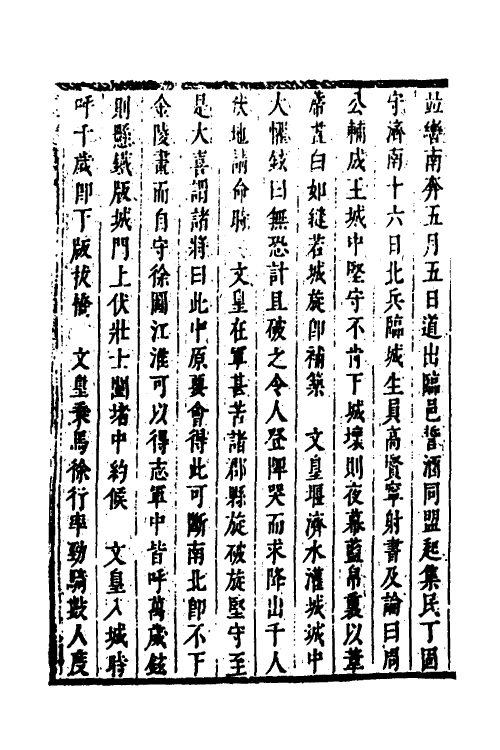 並轡南奔五月五日道出臨邑誓酒同盟起集民丁固
守濟南十六日北兵臨城生員高賢寧射書及論曰周
公輔成王城中堅守不肯下城壞則夜幕藍帛裹以葦
席苫白如縫若城旋即補築　文皇堰濟水灌城城中
大懼鉉曰無恐計且破之令人登陴哭而求降出千人
伏地請命時　文皇在軍甚苦諸郡縣旋破旋堅守至
是大喜謂諸將曰此中原要會得此可斷南北即不下
金陵畫而自守徐圖江淮可以得志軍中皆呼萬歲鉉
則懸鐵版城門上伏壯士闉堵中約候　文皇入城時
呼千歲即下版拔橋　文皇乘馬徐行率勁騎數人度